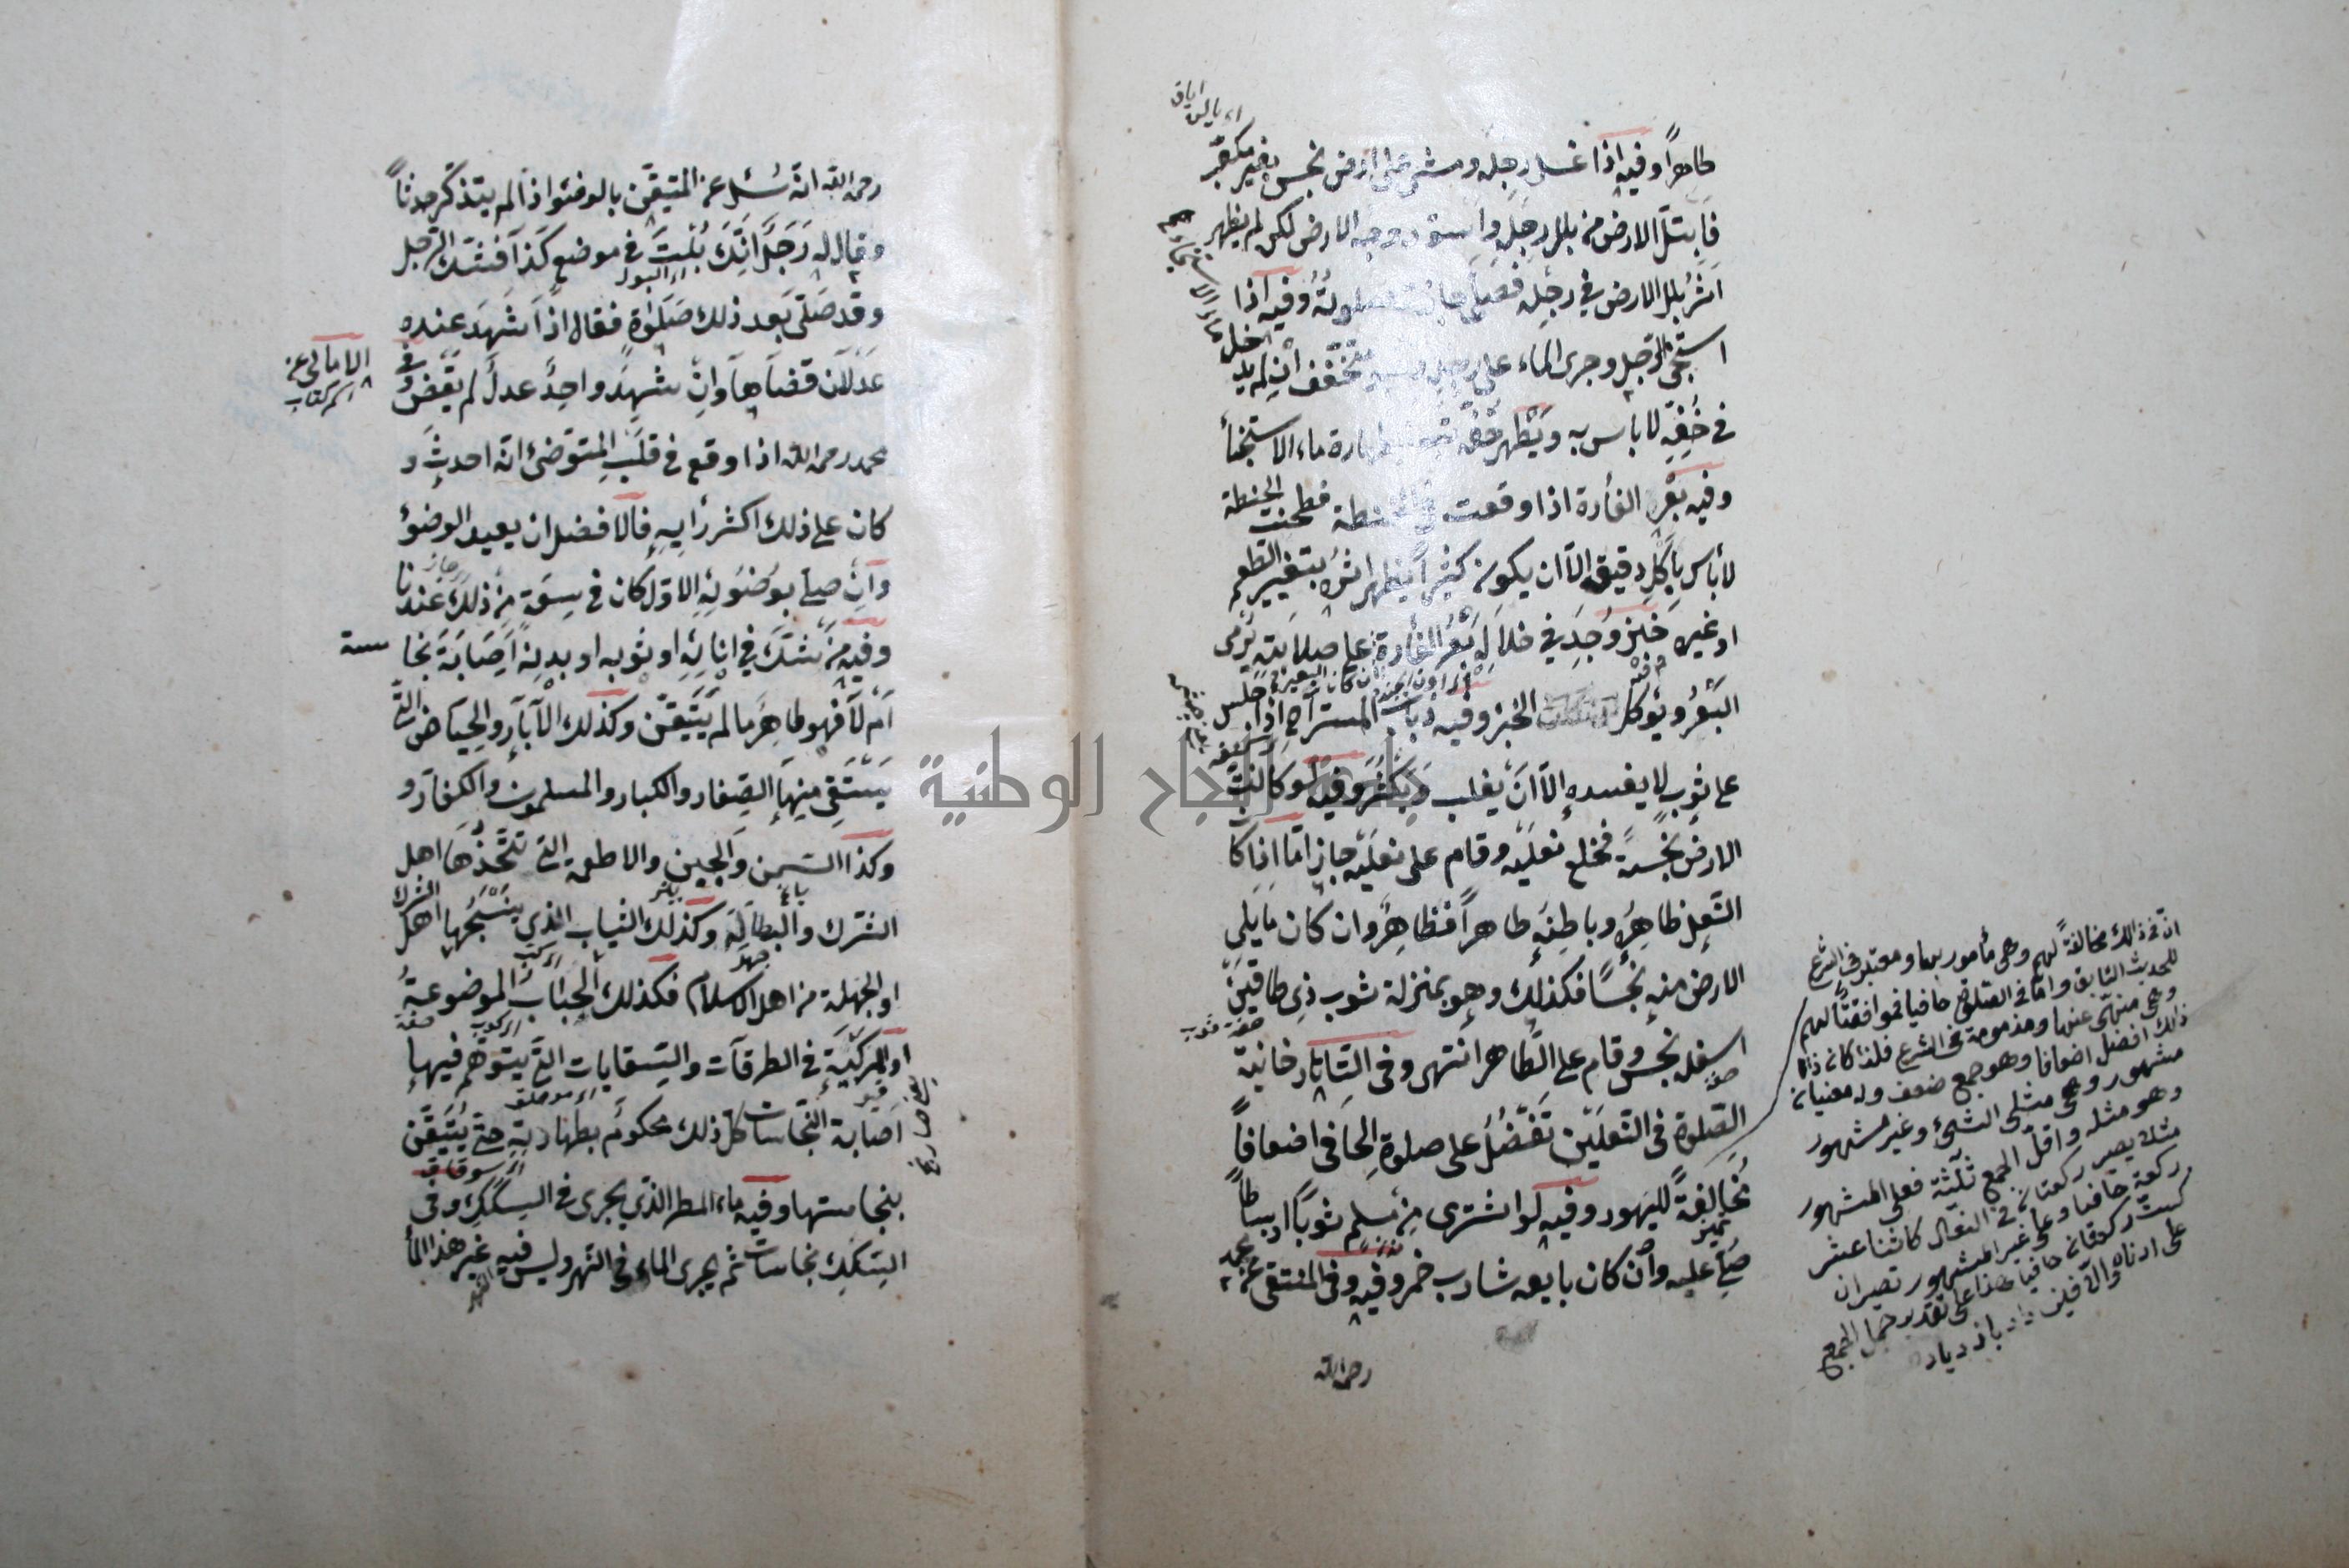 طاهراً وفيه اذا غسل رجله ومشى على ارض نجس بغير مكعّب
فابتلّ الارض من بلل رجله واسودّ وجه الارض لكن لم يظهر
اثر بلل الارض في رجله فصلّى جازت صلوته وفيه اذا
استنجى الرّجل وجرى الماء على رجله وهو متخفّف ان لم يدخل
في خُفّه لا بأس به ويطهر خفّه تبعاً لطهارة ماء الاستنجاء
وفيه بعر الفأرة اذا وقعت في الحنطة فطحنت الحنطة
لا بأس بأكل دقيق الّا ان يكون كثيراً يظهر اثره بتغيير الطّعم
او غيره خبز وُجد في خلاله بعر الفأرة على صلابته يرمى
البعر ويؤكل الخبز وفيه ذباب المستراح اذا جلس
على ثوب لا يفسده الّا ان يغلب ويكثر وفيه لو كانت
الارض نجسة فخلع نعليه وقام على نعليه جاز امّا اذا كا
النّعل ظاهره وباطنه طاهراً فظاهر وان كان ما يلي
الارض منه نجسًا فكذلك وهو بمنزلة ثوب ذي طاقين
اسفله نجس وقام على الطّاهر انتهى وفى التاتارخانية
الصّلوة فى النّعلين تفضل على صلوة الحافى اضعافاً
مخالفةً لليهود وفيه لو اشترى من مسلم ثوباً او بساطاً
صلّى عليه وان كان بايعه شارب خمر وفيه وفى المنتقى عن محمد
رحمه الله
انّ فى ذالك مخالفةً لهم وهى مأمور بها ومعتبر فى الشرع
للحديث السّابق وامّا فى الصّلوة حافيا فموافقتاً لهم
وهى منهىّ عنها ومذمومة فى الشرع فلذا كان ذا
ذلك افضل اضعافا وهو جمع ضعف وله معنيان
مشهور وهى مثلى الشىء وغير مشهور
وهو مثله واقلّ الجمع ثلثة فعلى المشهور
ركعة حافيا وعلى غير المشهور تصيران
رحمه الله انّه سُئل عن المتيقّن بالوضوء اذا لم يتذكّر حدثاً
وقال له رجل انّك بُلتَ في موضع كذا فشكّ الرّجل
وقد صلّى بعد ذلك صلوة فقال اذا شهد عنده
عدلان قضاها وان شهد واحد عدل لم يقض وفى
الامالى عن
محمد رحمه الله اذا وقع فى قلب المتوضّئ انّه احدث و
كان على ذلك اكثر رأيه فالافضل ان يعيد الوضوء
وان صلّى بوضوئه الاوّل كان فى سعة من ذلك عندنا
وفيه من شكّ في انائه او ثوبه او بدنه اصابة نجاسة
ام لا فهو طاهر ما لم يتيقّن وكذلك الآبار والحياض الّتى
يستقى منها الصغار والكبار والمسلمون والكفار و
وكذا السّمن والجبن والاطعمة التى تتّخذها اهل
الشرك والبطالة وكذلك الثياب الذي ينسجها اهل الشرك
او الجهلة من اهل الاسلام فكذلك الجباب الموضوعة
او المركبة فى الطرقات والسّقايات التى يتوهّم فيها
اصابة النّجاسات كل ذلك محكوم بطهارته حتى يتيقّن
بنجاستها وفيه ماء المطر الذي يجرى فى السكك وفى
السّكك نجاسات ثم يجرى الماء فى النّهر وليس فيه غير هذا الماء
جامعة النجاح الوطنية